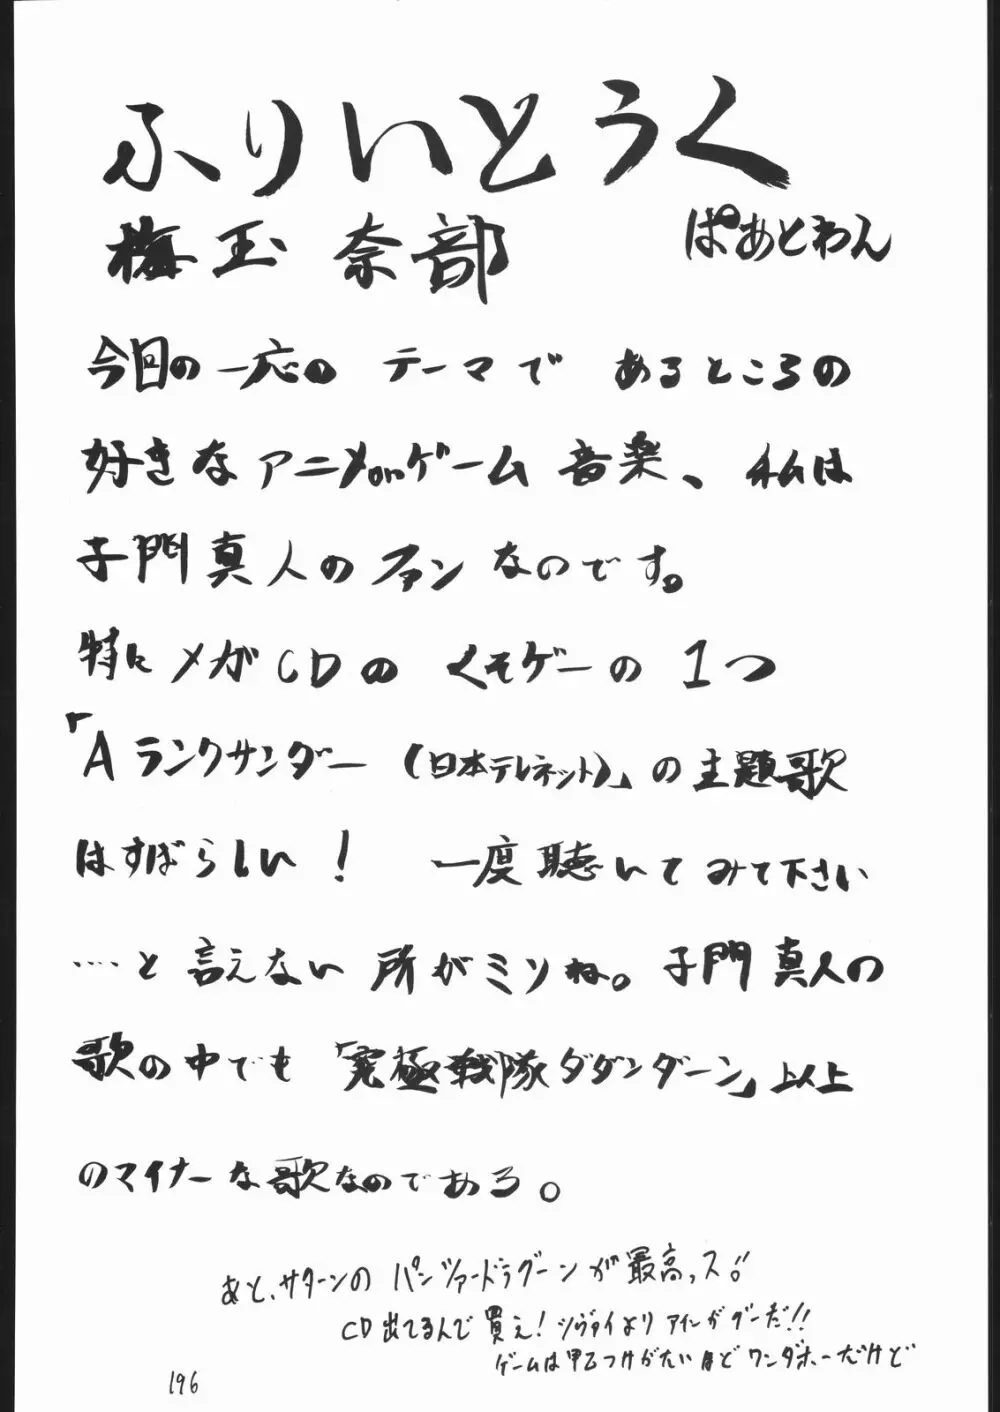 ふりいとうく
梅玉 奈部 ぱあとわん
今回の一応の テーマで あるところの
好きなアニメorゲーム 音楽、私は
子門真人のファンなのです。
特にメガCDの くそゲーの 1つ
「Aランクサンダー (日本テレネット)」の主題歌
はすばらしい! 一度聴いてみて下さい
‥‥と 言えない 所がミソね。子門真人の
歌の中でも 「究極戦隊ダダンダーン」以上
のマイナーな歌なのである。
あと、サターンの パンツァードラグーンが最高っス!!
CD出てるんで買え! ツヴァイより アインがグーだ!!
ゲームは甲乙つけがたいほど ワンダホーだけど
196